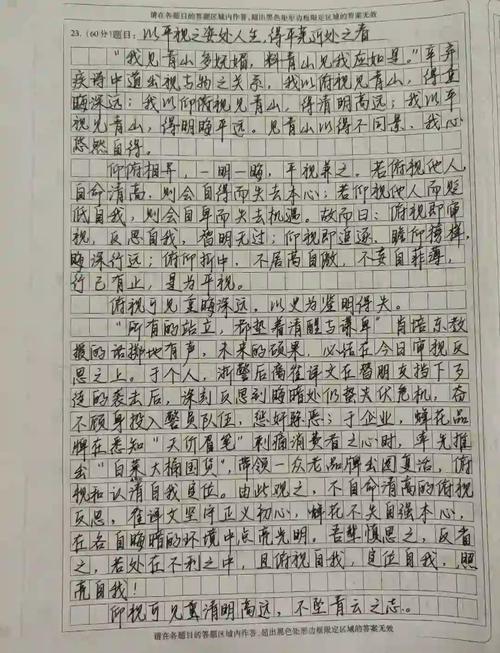 请在各题目的答题区域内作答,超出黑色矩形边框限定区域的答案无效
23.(60分)题目:以平视之姿处人生,得平光近处之看
“我见青山多妩媚,料青山见我应如是。”辛弃
疾诗中道出视与物之关系,我以俯视见青山,得其
晦深远;我以仰俯视见青山,得清明高远;我以平
视见青山,得明晦平远。见青山以得不同景,我心
悠然自得。
仰俯相异,一明一晦,平视兼之。若俯视他人,
自命清高,则会自得而失去本心;若仰视他人而贬
低自我,则会自卑而失去机遇。故而曰:俯视即审
视,反思自我,智明无过;仰视即追逐,瞻仰榜样,
晦深行远;俯仰折中,不居高自傲,不妄自菲薄,
行己有止,是为平视。
俯视可见重晦深远,以史为鉴明得失。
“所有的站立,都垫着清醒与谦卑”肖培东教
授的话掷地有声,未来的硕果,必活在今日审视反
思之上。于个人,浙警后高崔译文在替朋友挡下歹
徒的袭击后,深刻反思到晦暗处仍蛰夫伏危机,奋
不顾身投入警员队伍,惩奸除恶;于企业,蜂花品
牌在悉知“天价眉笔”刺痛消费者之心时,率先推
出“白菜大桶国货”,带领一众老品牌出圈复活,俯
视和认清自我定位。由此观之,不自命清高的俯视
反思,崔译文坚守正义初心,蜂花不失自强本心,
在各自晦暗的环境中点亮光明。吾辈慎思之,反省
之,若处在不利之中,且俯视自我,定位自我,照
亮自我!
仰视可见重清明高远,不坠青云之志。
请在各题目的答题区域内作答,超出黑色矩形边框限定区域的答案无效